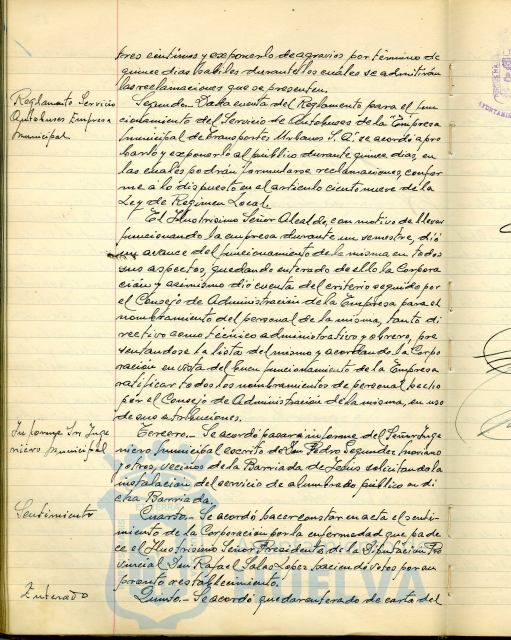 tres centimos y exponerlo de agravios por término de
quince dias habiles durante los cuales se admitirán
las reclamaciones que se presenten.
Reglamento Servicio
Autobuses Empresa
Municipal
Segundo.- Dada cuenta del Reglamento para el fun
cionamiento del Servicio de Autobuses de la Empresa
Municipal de Transportes Urbanos S.A. se acordó apro
barlo y exponerlo al público durante quince dias, en
las cuales podrán formularse reclamaciones, confor
me á lo dispuesto en el artículo ciento nueve de la
Ley de Régimen Local.
El Ilustrisimo Señor Alcalde, con motivo de llevar
funcionando la empresa durante un semestre, dió
un avance del funcionamiento de la misma en todos
sus aspectos, quedando enterado de ello la Corpora
ción y asimismo dió cuenta del criterio seguido por
el Consejo de Administración de la Empresa para el
nombramiento del personal de la misma, tanto di
rectivo como técnico administrativo y obrero, pre
sentandose la lista del mismo y acordando la Corpo
ración en vista del buen funcionamiento de la Empresa
ratificar todos los nombramientos de personal hecho
por el Consejo de Administración de la misma, en uso
de sus atribuciones.
Informe Sr. Inge
niero Municipal
Tercero.- Se acordó pasar á informe del Señor Inge
niero Municipal escrito de Don Pedro Segundez Moriano
y otros, vecinos de la Barriada de Jesus solicitando la
instalación del servicio de alumbrado público en di
cha Barriada.
Sentimiento
Cuarto.- Se acordó hacer constar en acta el senti-
miento de la Corporación por la enfermedad que pade
ce el Ilustrisimo Señor Presidente de la Diputación Pro
vincial Don Rafael Salas López haciendo votos por su
pronto restablecimiento.
Enterado
Quinto.- Se acordó quedar enterado de carta del
HUELVA